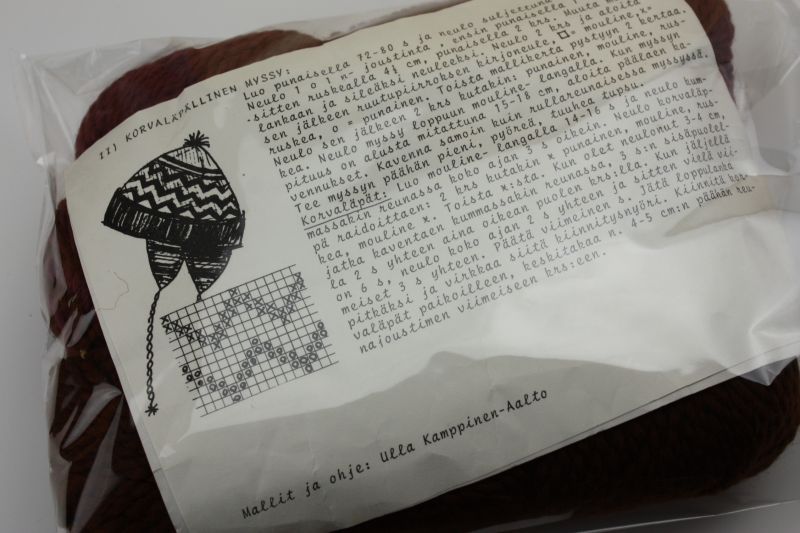 II) KORVALÄPÄLLINEN MYSSY:
Luo punaisella 72-80 s ja neulo suljettuna
Neulo 1 o 1 n- joustinta, ensin punaisella
-sitten ruskealla 4½ cm, punaisella 2 krs. Muuta
lankaan ja sileäksi neuleeksi. Neulo 2 krs ja aloita
sen jälkeen ruutupiirroksen kirjoneule, □= mouline, x=
ruskea, o = punainen. Toista mallikerta pystyyn 2 kertaa.
Neulo sen jälkeen 2 krs kutakin: punainen, mouline, rus-
kea. Neulo myssy loppuun mouline- langalla. Kun myssyn
pituus on alusta mitattuna 15-18 cm, aloita päälaen ka-
vennukset. Kavenna samoin kuin rullareunaisessa myssyssä.
Tee myssyn päähän pieni, pyöreä, tuuhea tupsu.
Korvaläpät: Luo mouline- langalla 14-16 s ja neulo kum-
massakin reunassa koko ajan 3 s oikein. Neulo korvaläp-
pä raidoittaen: 2 krs kutakin * punainen, mouline, rus-
kea, mouline *. Toista *:sta. Kun olet neulonut 3-4 cm,
jatka kaventaen kummassakin reunassa, 3 s:n sisäpuolel-
la 2 s yhteen aina oikean puolen krs:lla. Kun jäljellä
on 6 s, neulo koko ajan 2 s yhteen ja sitten vielä vii-
meiset 3 s yhteen. Päätä viimeinen s. Jätä loppulanka
pitkäksi ja virkkaa siitä kiinnitysnyöri. Kiinnitä kor-
valäpät paikoilleen, keskitakaa n. 4-5 cm:n päähän reu-
najoustimen viimeiseen krs:een.
Mallit ja ohje: Ulla Kamppinen-Aalto